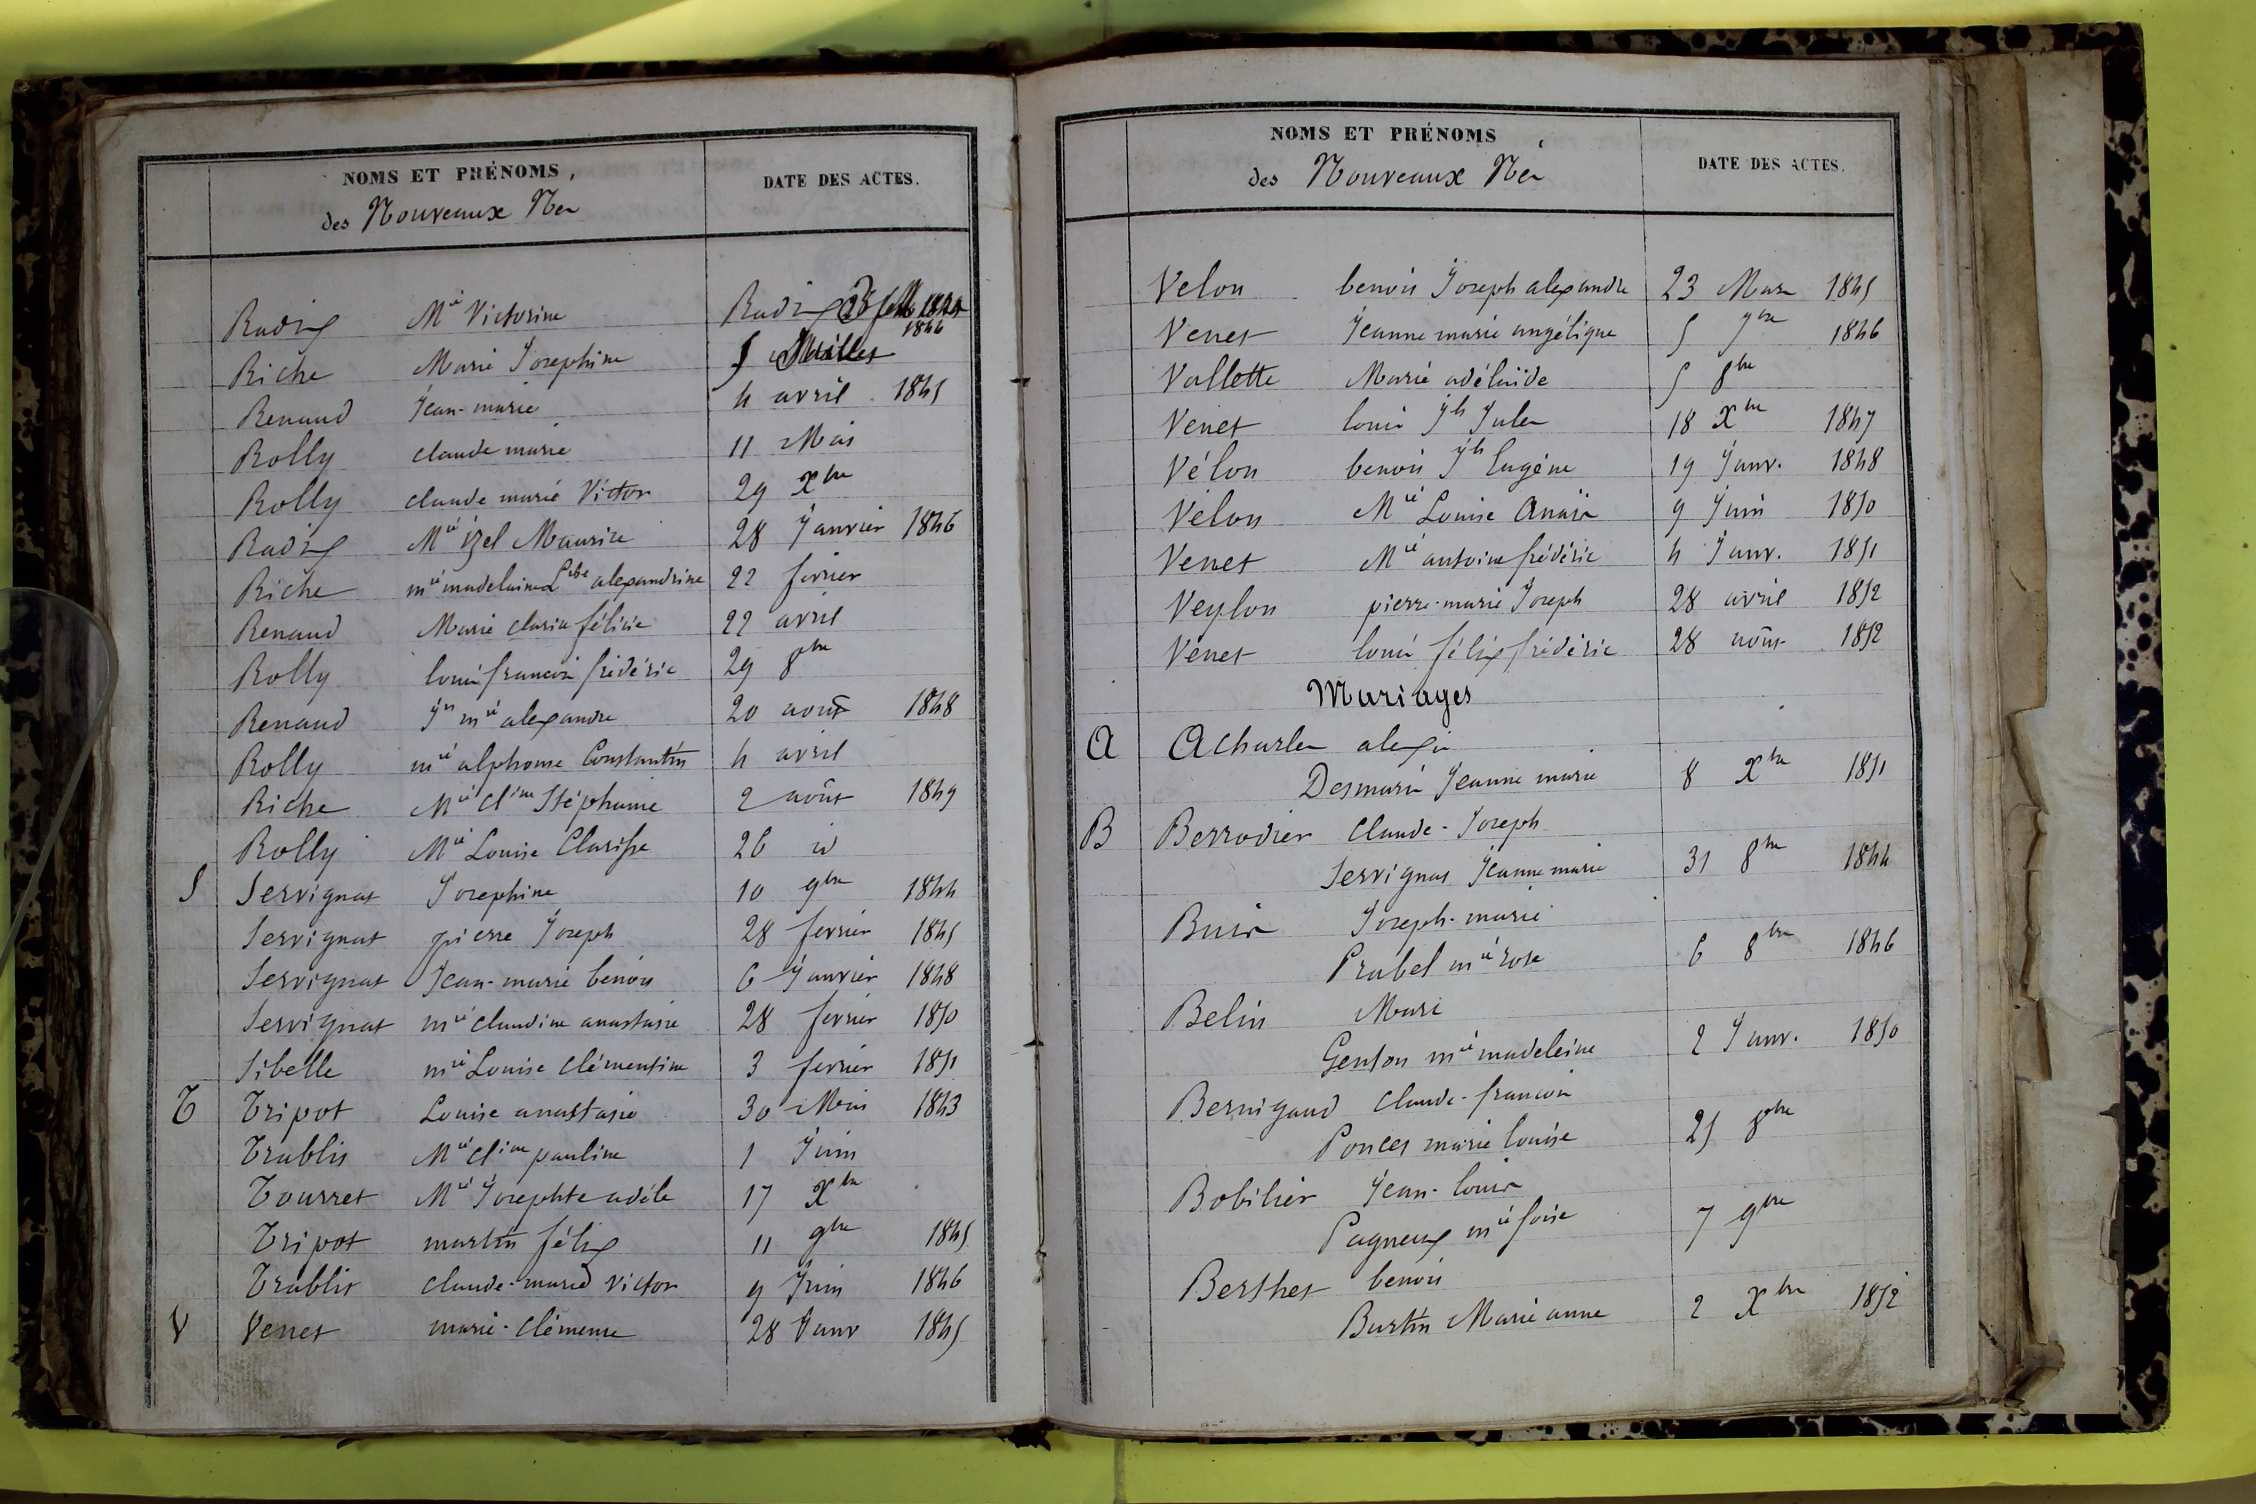 NOMS ET PRÉNOMS
des Nouveaux Nés
DATE DES ACTES.
Radix Mie Victorine Radix 1846
Riche Marie Josephine 5 Juillet
Renaud Jean-marie 4 avril 1845
Rolly claude marie 11 Mai
Rolly claude marie Victor 29 Xbre
Radix Mie izel Maurice 28 Janvier 1846
Riche mie madelaine alexandrine 22 fevrier
Renaud Marie clarice félicie 22 avril
Rolly louis francois frédéric 29 8bre
Renaud Jn mie alexandre 20 août 1848
Rolly mie alphonse Constantin 4 avril
Riche Mie Cline Stéphanie 2 août 1849
Rolly Mie Louise Clarisse 26 id
S Servignat Josephine 10 9bre 1844
Servignat pierre Joseph 28 fevrier 1845
Servignat Jean-marie benoit 6 Janvier 1848
Servignat mie claudine anastasie 28 fevrier 1850
Sibelle mie Louise Clémentine 3 fevrier 1851
T Tripot Louise anastasie 30 Mai 1843
Trablis Mie Cline pauline 1 Juin
Tourret Mie Josephte adèle 17 Xbre
Tripot martin félix 11 9bre 1845
Trablit claude-marie victor 9 Juin 1846
V Venet marie-clémence 28 Janv 1845
NOMS ET PRÉNOMS
des Nouveaux Nés
DATE DES ACTES.
Velon benoit Joseph alexandre 23 Mars 1845
Venet Jeanne marie angélique 5 7bre 1846
Vallette Marie adélaïde 5 8bre
Venet louis Jh Jules 18 Xbre 1847
Vélon benoit Jh Eugène 19 Janv. 1848
Vélon Mie Louise Anaïs 9 Juin 1850
Venet Mie antoine frédéric 4 Janv. 1851
Veylon pierre-marie Joseph 28 avril 1852
Venet louis félix frédéric 28 août 1852
Mariages
A Acharles alexis
Desmaris Jeanne marie 8 Xbre 1851
B Berrodier Claude-Joseph
Servignat Jeanne marie 31 8bre 1844
Buis Joseph-marie
Prabel mie rose 6 8bre 1846
Belin Marc
Genton mie madeleine 2 Janv. 1850
Bernigaud Claude-francois
Poncet marie louise 25 8bre
Bobilier Jean-louis
Pagneux mie foise 7 9bre
Berthet benoit
Burtin Marie anne 2 Xbre 1852